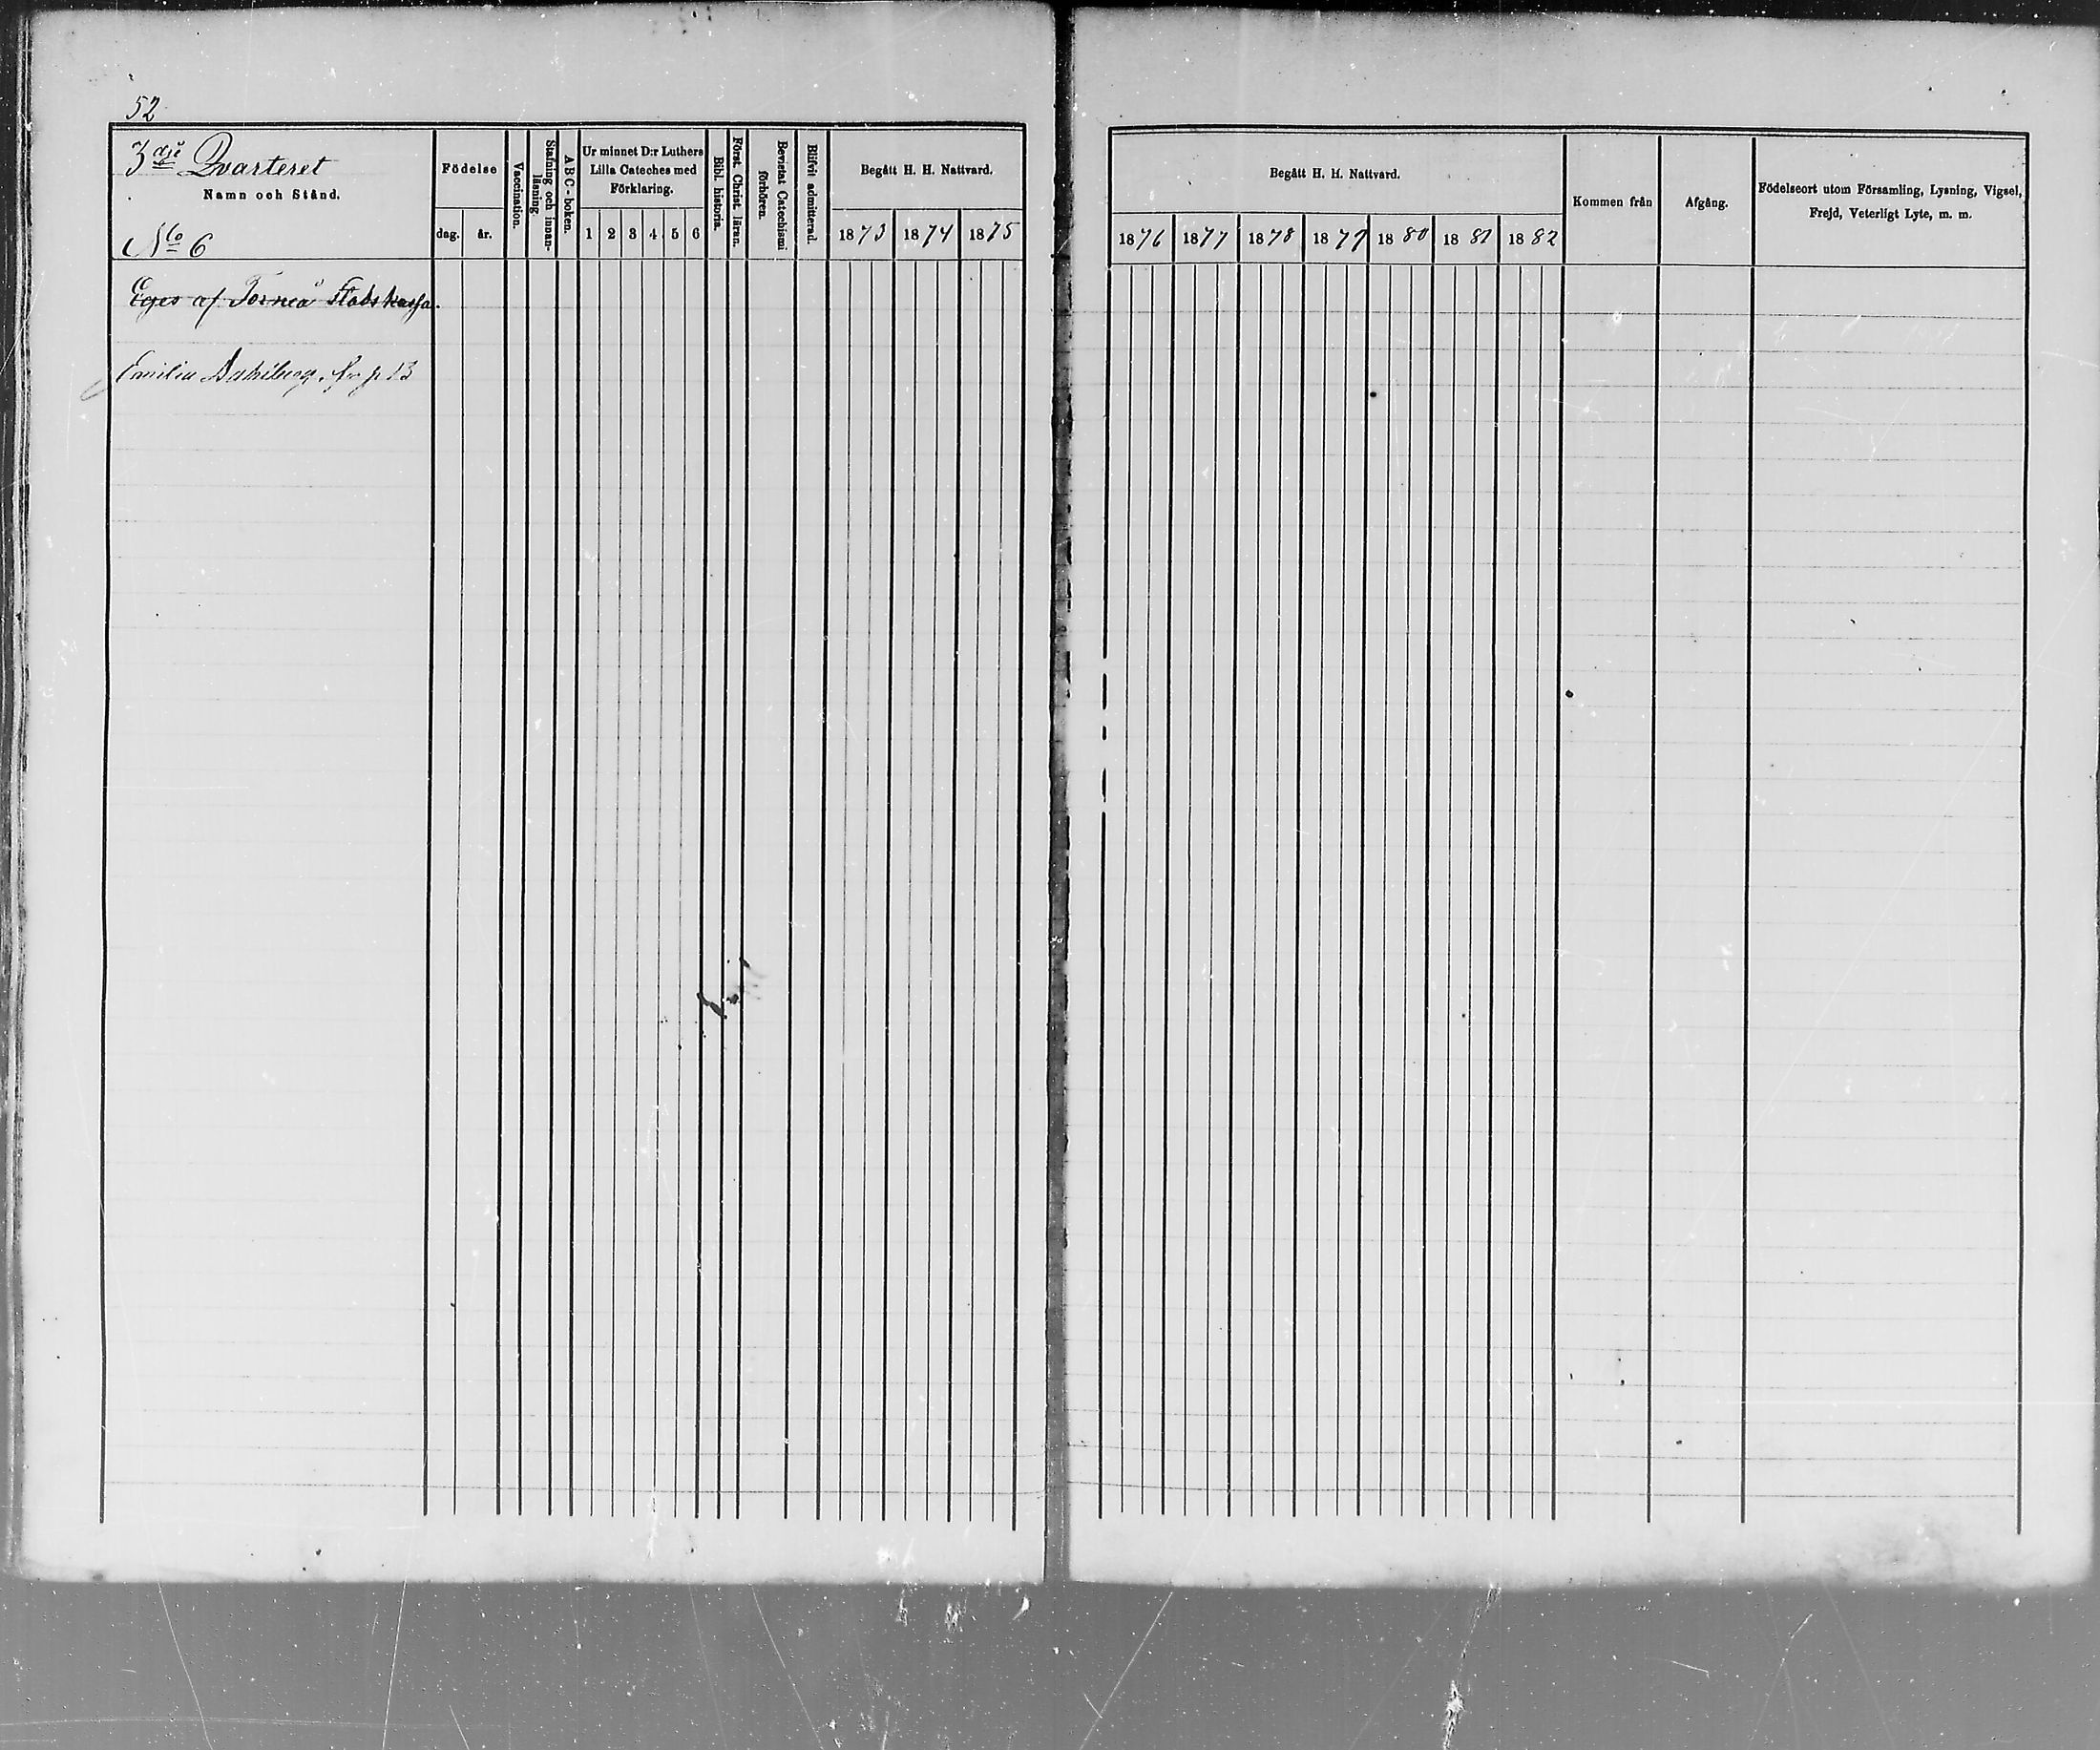 52
3dje Qvarteret
Namn och Stånd.
No 6
Födelse
dag. år.
Vaccination.
Stafning och innan-
läsning
ABC-boken.
Ur minnet D:r Luthers
Lilla Cateches med
Förklaring.
1 2 3 4 5 6
Bibl. historia.
Först. Christ. läran.
Bevistat Catechismi
förhören.
Blifvit admitterad.
Begått H. H. Nattvard.
1873 1874 1875
Eges af Torneå Stads kassa.
Emilia fr p 13
Begått H. H. Nattvard.
1876 1877 1878 1879 1880 1881 1882
Kommen från
Afgång.
Födelseort utom Församling, Lysning, Vigsel,
Frejd, Veterligt Lyte, m. m.